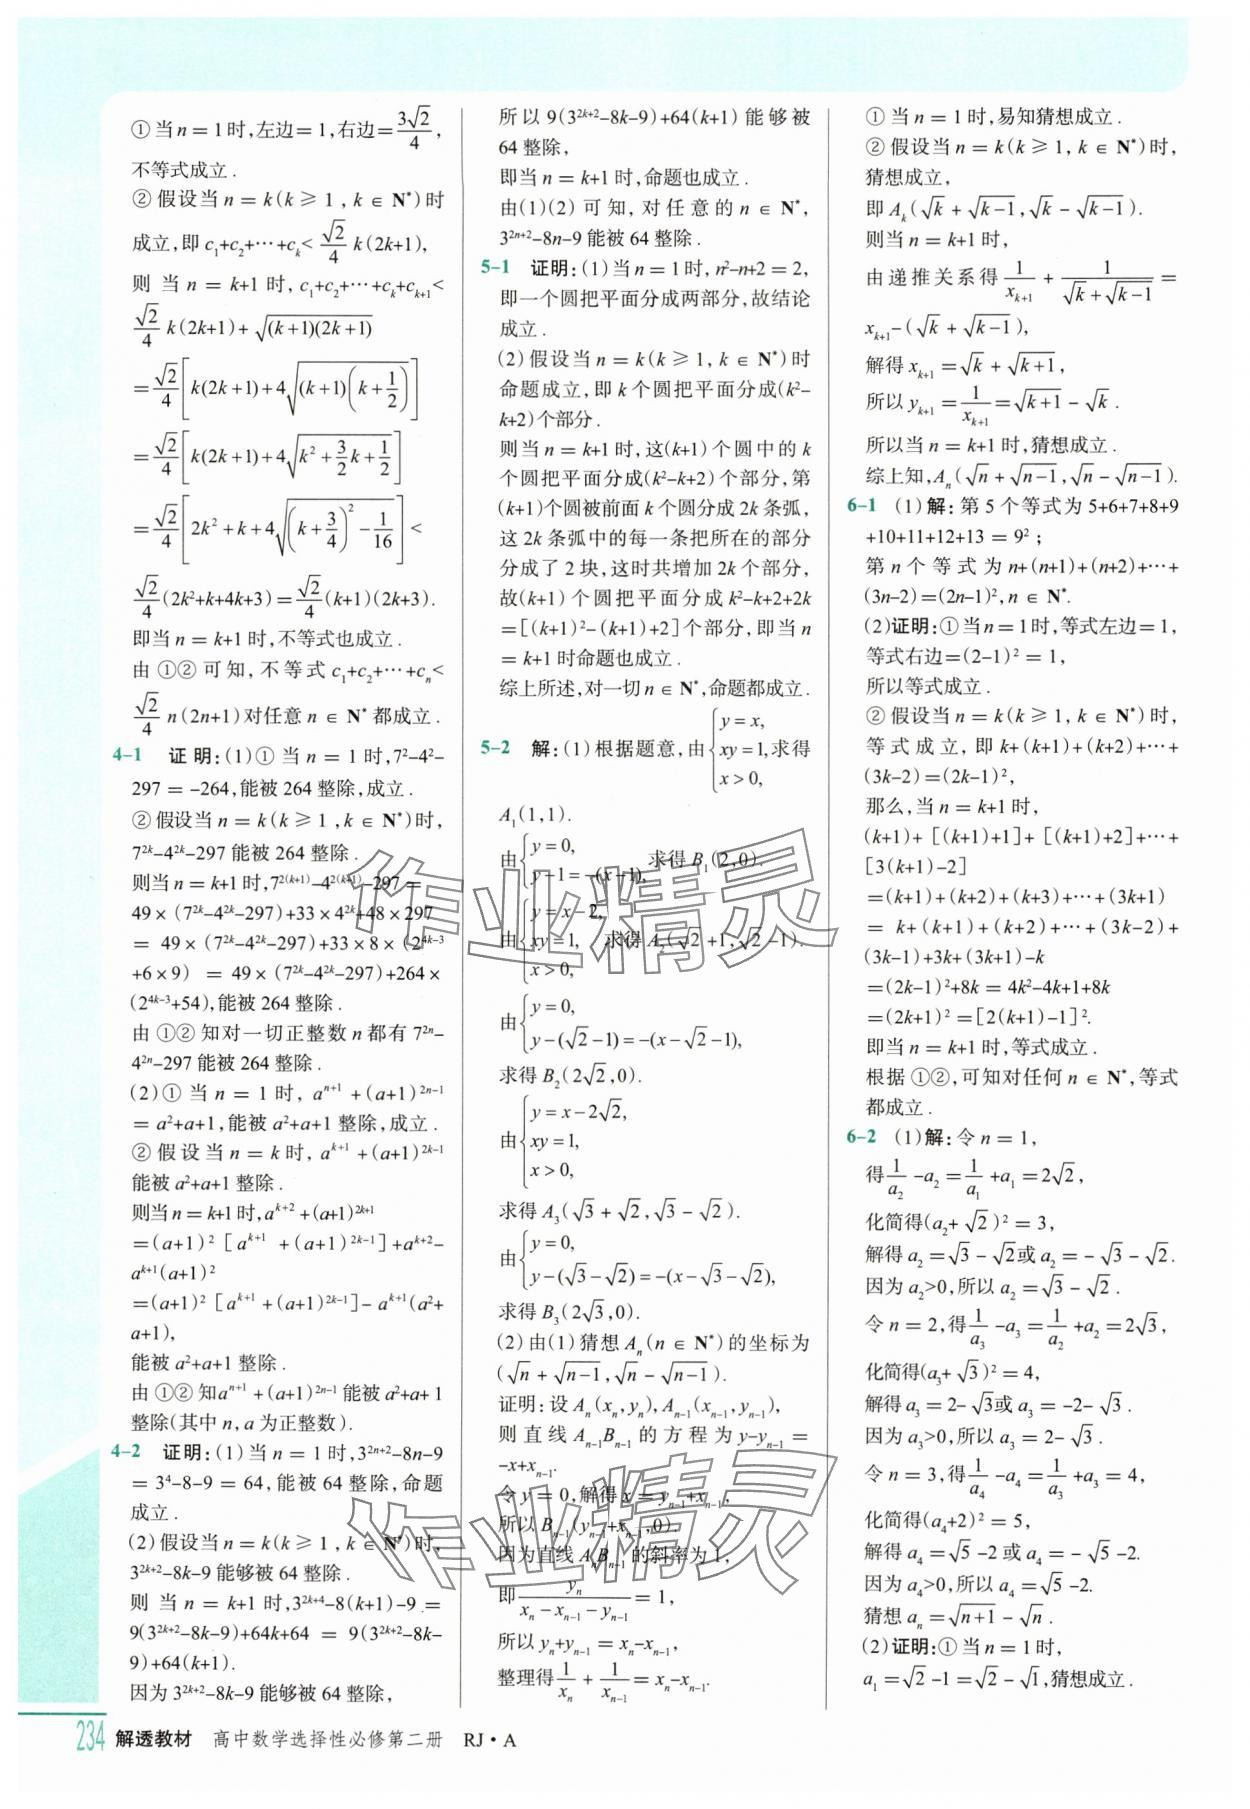 ①当n=1时,左边=1,右边=3√2/4,
不等式成立.
②假设当n=k(k⩾1,k∈N*)时
成立,即c₁+c₂+⋯+cₖ<√2/4 k(2k+1),
则当n=k+1时,c₁+c₂+⋯+cₖ+cₖ₊₁<
√2/4 k(2k+1)+√((k+1)(2k+1))
=√2/4[k(2k+1)+4√((k+1)(k+1/2))]
=√2/4[k(2k+1)+4√(k²+3/2k+1/2)]
=√2/4[2k²+k+4√((k+3/4)²-1/16)]<
√2/4(2k²+k+4k+3)=√2/4(k+1)(2k+3).
即当n=k+1时,不等式也成立.
由①②可知,不等式c₁+c₂+⋯+cₙ<
√2/4 n(2n+1)对任意n∈N*都成立.
4-1 证明:(1)①当n=1时,7²-4²-
297=-264,能被264整除,成立.
②假设当n=k(k⩾1,k∈N*)时,
7²ᵏ-4²ᵏ-297能被264整除.
则当n=k+1时,7²⁽ᵏ⁺¹⁾-4²⁽ᵏ⁺¹⁾-297=
49×(7²ᵏ-4²ᵏ-297)+33×4²ᵏ+48×297
=49×(7²ᵏ-4²ᵏ-297)+33×8×(2⁴ᵏ⁻³
+6×9)=49×(7²ᵏ-4²ᵏ-297)+264×
(2⁴ᵏ⁻³+54),能被264整除.
由①②知对一切正整数n都有7²ⁿ-
4²ⁿ-297能被264整除.
(2)①当n=1时,aⁿ⁺¹+(a+1)²ⁿ⁻¹
=a²+a+1,能被a²+a+1整除,成立.
②假设当n=k时,aᵏ⁺¹+(a+1)²ᵏ⁻¹
能被a²+a+1整除.
则当n=k+1时,aᵏ⁺²+(a+1)²ᵏ⁺¹
=(a+1)²[aᵏ⁺¹+(a+1)²ᵏ⁻¹]+aᵏ⁺²-
aᵏ⁺¹(a+1)²
=(a+1)²[aᵏ⁺¹+(a+1)²ᵏ⁻¹]-aᵏ⁺¹(a²+
a+1),
能被a²+a+1整除.
由①②知aⁿ⁺¹+(a+1)²ⁿ⁻¹能被a²+a+1
整除(其中n,a为正整数).
4-2 证明:(1)当n=1时,3²ⁿ⁺²-8n-9
=3⁴-8-9=64,能被64整除,命题
成立.
(2)假设当n=k(k⩾1,k∈N*)时,
3²ᵏ⁺²-8k-9能够被64整除.
则当n=k+1时,3²ᵏ⁺⁴-8(k+1)-9=
9(3²ᵏ⁺²-8k-9)+64k+64=9(3²ᵏ⁺²-8k-
9)+64(k+1).
因为3²ᵏ⁺²-8k-9能够被64整除,
所以9(3²ᵏ⁺²-8k-9)+64(k+1)能够被
64整除,
即当n=k+1时,命题也成立.
由(1)(2)可知,对任意的n∈N*,
3²ⁿ⁺²-8n-9能被64整除.
5-1 证明:(1)当n=1时,n²-n+2=2,
即一个圆把平面分成两部分,故结论
成立.
(2)假设当n=k(k⩾1,k∈N*)时
命题成立,即k个圆把平面分成(k²-
k+2)个部分.
则当n=k+1时,这(k+1)个圆中的k
个圆把平面分成(k²-k+2)个部分,第
(k+1)个圆被前面k个圆分成2k条弧,
这2k条弧中的每一条把所在的部分
分成了2块,这时共增加2k个部分,
故(k+1)个圆把平面分成k²-k+2+2k
=[(k+1)²-(k+1)+2]个部分,即当n
=k+1时命题也成立.
综上所述,对一切n∈N*,命题都成立.
5-2 解:(1)根据题意,由{y=x, xy=1, x>0,求得
A₁(1,1).
由{y=0, y-1=-(x-1),求得B₁(2,0).
由{y=x-2, xy=1, x>0,求得A₂(√2+1,√2-1).
由{y=0, y-(√2-1)=-(x-√2-1),
求得B₂(2√2,0).
由{y=x-2√2, xy=1, x>0,
求得A₃(√3+√2,√3-√2).
由{y=0, y-(√3-√2)=-(x-√3-√2),
求得B₃(2√3,0).
(2)由(1)猜想Aₙ(n∈N*)的坐标为
(√n+√(n-1),√n-√(n-1)).
证明:设Aₙ(xₙ,yₙ),Aₙ₋₁(xₙ₋₁,yₙ₋₁),
则直线Aₙ₋₁Bₙ₋₁的方程为y-yₙ₋₁=
-x+xₙ₋₁.
令y=0,解得x=yₙ₋₁+xₙ₋₁,
所以Bₙ₋₁(yₙ₋₁+xₙ₋₁,0).
因为直线AₙBₙ₋₁的斜率为1,
即yₙ/(xₙ-xₙ₋₁-yₙ₋₁)=1,
所以yₙ+yₙ₋₁=xₙ-xₙ₋₁,
整理得1/xₙ+1/xₙ₋₁=xₙ-xₙ₋₁.
①当n=1时,易知猜想成立.
②假设当n=k(k⩾1,k∈N*)时,
猜想成立,
即Aₖ(√k+√(k-1),√k-√(k-1)).
则当n=k+1时,
由递推关系得1/xₖ₊₁+1/(√k+√(k-1))=
xₖ₊₁-(√k+√(k-1)),
解得xₖ₊₁=√k+√(k+1),
所以yₖ₊₁=1/xₖ₊₁=√(k+1)-√k.
所以当n=k+1时,猜想成立.
综上知,Aₙ(√n+√(n-1),√n-√(n-1)).
6-1 (1)解:第5个等式为5+6+7+8+9
+10+11+12+13=9²;
第n个等式为n+(n+1)+(n+2)+⋯+
(3n-2)=(2n-1)²,n∈N*.
(2)证明:①当n=1时,等式左边=1,
等式右边=(2-1)²=1,
所以等式成立.
②假设当n=k(k⩾1,k∈N*)时,
等式成立,即k+(k+1)+(k+2)+⋯+
(3k-2)=(2k-1)²,
那么,当n=k+1时,
(k+1)+[(k+1)+1]+[(k+1)+2]+⋯+
[3(k+1)-2]
=(k+1)+(k+2)+(k+3)+⋯+(3k+1)
=k+(k+1)+(k+2)+⋯+(3k-2)+
(3k-1)+3k+(3k+1)-k
=(2k-1)²+8k=4k²-4k+1+8k
=(2k+1)²=[2(k+1)-1]².
即当n=k+1时,等式成立.
根据①②,可知对任何n∈N*,等式
都成立.
6-2 (1)解:令n=1,
得1/a₂-a₂=1/a₁+a₁=2√2,
化简得(a₂+√2)²=3,
解得a₂=√3-√2或a₂=-√3-√2.
因为a₂>0,所以a₂=√3-√2.
令n=2,得1/a₃-a₃=1/a₂+a₂=2√3,
化简得(a₃+√3)²=4,
解得a₃=2-√3或a₃=-2-√3.
因为a₃>0,所以a₃=2-√3.
令n=3,得1/a₄-a₄=1/a₃+a₃=4,
化简得(a₄+2)²=5,
解得a₄=√5-2或a₄=-√5-2.
因为a₄>0,所以a₄=√5-2.
猜想aₙ=√(n+1)-√n.
(2)证明:①当n=1时,
a₁=√2-1=√2-√1,猜想成立.
作业精灵
作业精灵
234 解透教材 高中数学选择性必修第二册 RJ·A